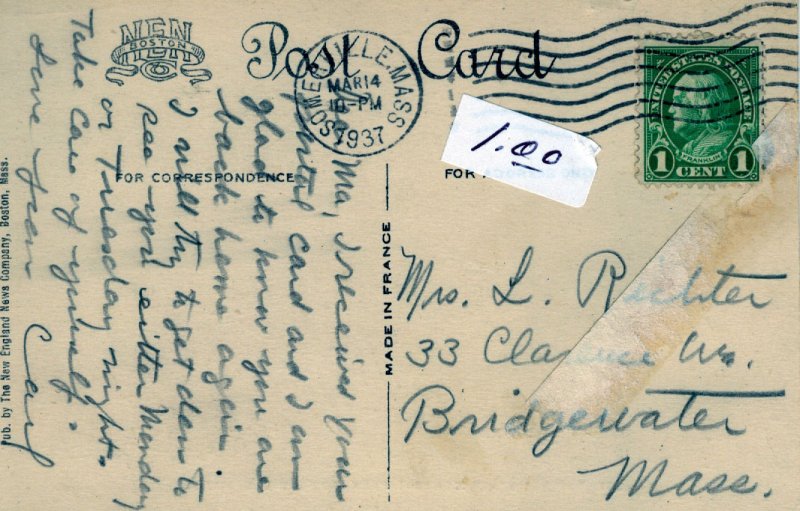 NEN
BOSTON
Post Card
SOMERVILLE, MASS
MAR 14
10-PM
1937
UNITED STATES POSTAGE
FRANKLIN
1 CENT 1
1.00
FOR CORRESPONDENCE
FOR
MADE IN FRANCE
Pub. by The New England News Company, Boston, Mass.
Ma, I received your
card and I am
glad to know you are
back home again.
I will try to get down to
see you either Monday
or Tuesday night.
Take care of yourself.
Love
Mrs. L. Richter
33 Clarence
Bridgewater
Mass.